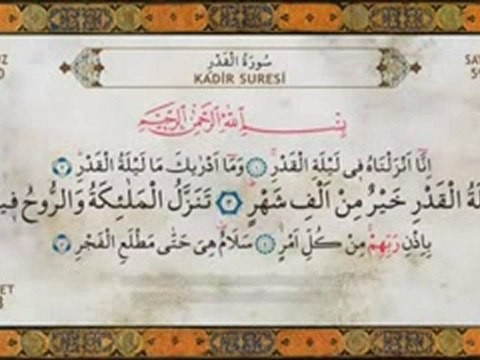 سُورَةُ الْقَدْرِ
KADİR SURESİ
بِسْمِ اللّٰهِ الرَّحْمٰنِ الرَّحِيمِ
اِنَّٓا اَنْزَلْنَاهُ فِى لَيْلَةِ الْقَدْرِ ﴿١﴾ وَمَٓا اَدْرٰيكَ مَا لَيْلَةُ الْقَدْرِ ﴿٢﴾
لَةُ الْقَدْرِ خَيْرٌ مِنْ اَلْفِ شَهْرٍ ﴿٣﴾ تَنَزَّلُ الْمَلٰٓئِكَةُ وَالرُّوحُ فِيهَا
بِاِذْنِ رَبِّهِمْ مِنْ كُلِّ اَمْرٍ ﴿٤﴾ سَلَامٌ هِىَ حَتّٰى مَطْلَعِ الْفَجْرِ ﴿٥﴾